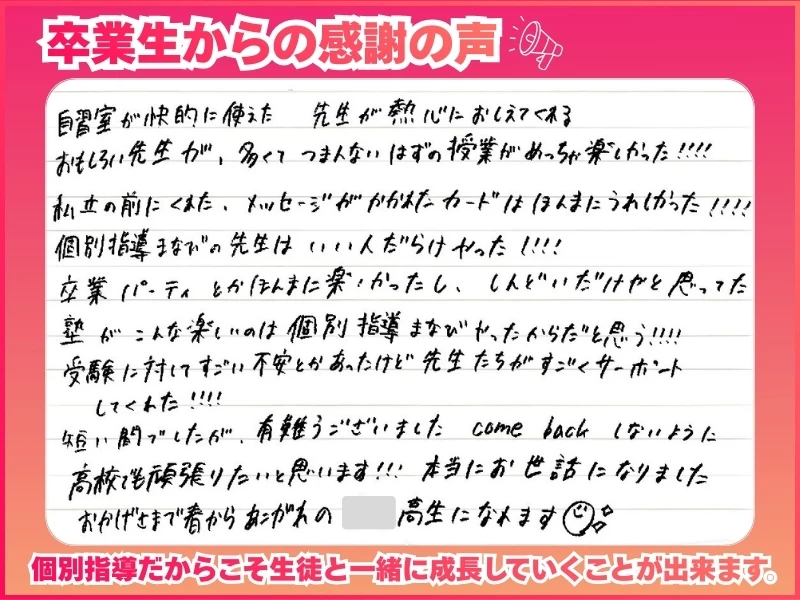 卒業生からの感謝の声
自習室が快的に使えた 先生が熱心におしえてくれる
おもしろい先生が、多くて つまんないはずの授業がめっちゃ楽しかった!!!!
私立の前にくれた、メッセージがかかれたカードはほんまにうれしかった!!!!
個別指導まなびの先生は いい人だらけやった!!!!
卒業パーティとかほんまに楽しかったし、しんどいだけやと思ってた
塾がこんな楽しいのは個別指導まなびやったからだと思う!!!!
受験に対してすごい不安とかあったけど先生たちがすごくサーポート
してくれた!!!!
短い間でしたが、有難うございました come back しないように
高校でも頑張りたいと思います!!! 本当にお世話になりました
おかげさまで春からあこがれの 高生になれます
個別指導だからこそ生徒と一緒に成長していくことが出来ます。